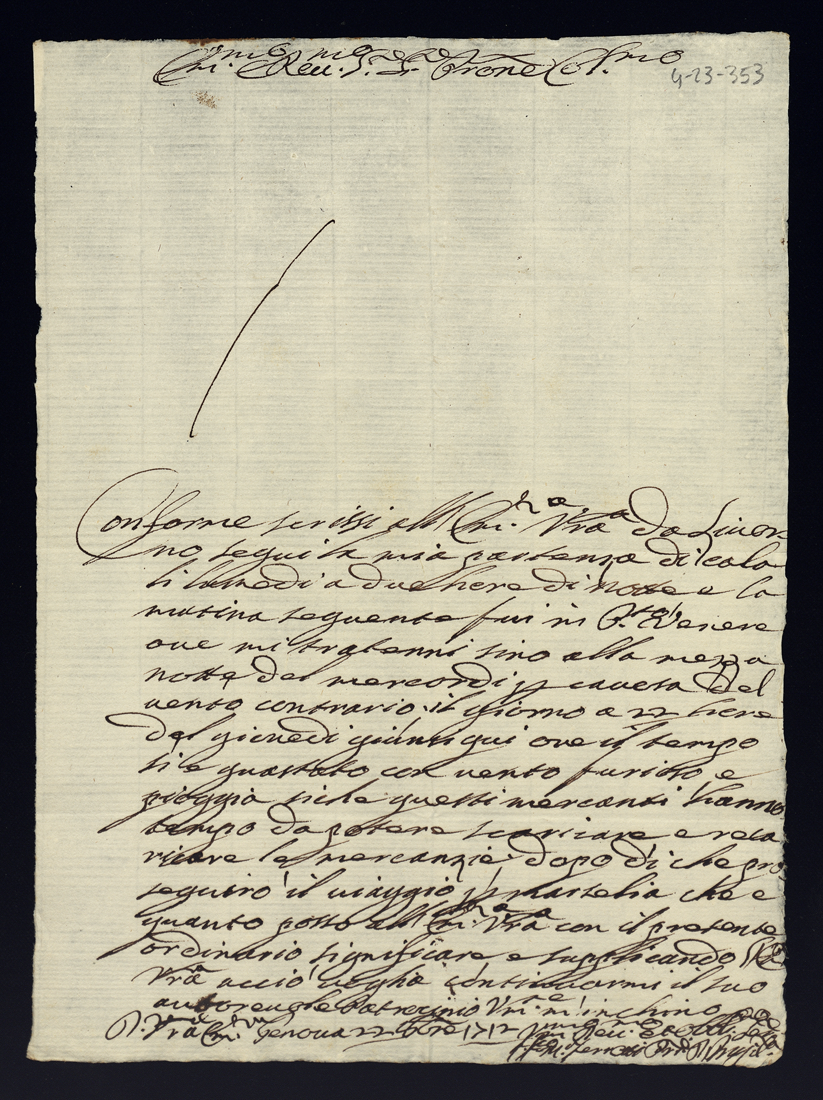 Em.mo Reu.mo Sig.re Sig.re Prone Col.mo
4-23-353
Conforme scrissi all' Em.za Vra da Liuor-
no seguì la mia partenza di colà
li lunedi a due here di notte e la
matina seguente fui in P.to Venere
oue mi tratenni sino alla mezza
notte del mercordi p causa del
vento contrario, il giorno a 22 here
del giouedi giunsi qui oue il tempo
si è guastato con vento furioso e
pioggia siche questi mercanti hanno
tempo da potere scaricare e reca
ricare le mercanzie dopo di che pro-
seguirò il uiaggio p Marselia che e
quanto posso all' Em.za Vra con il presente
ordinario significare e supplicando
Vra acciò uoglia continuarmi il suo
autoreuole Patrocinio m'inchino
D. Vra Em.za Genoua 22 1712